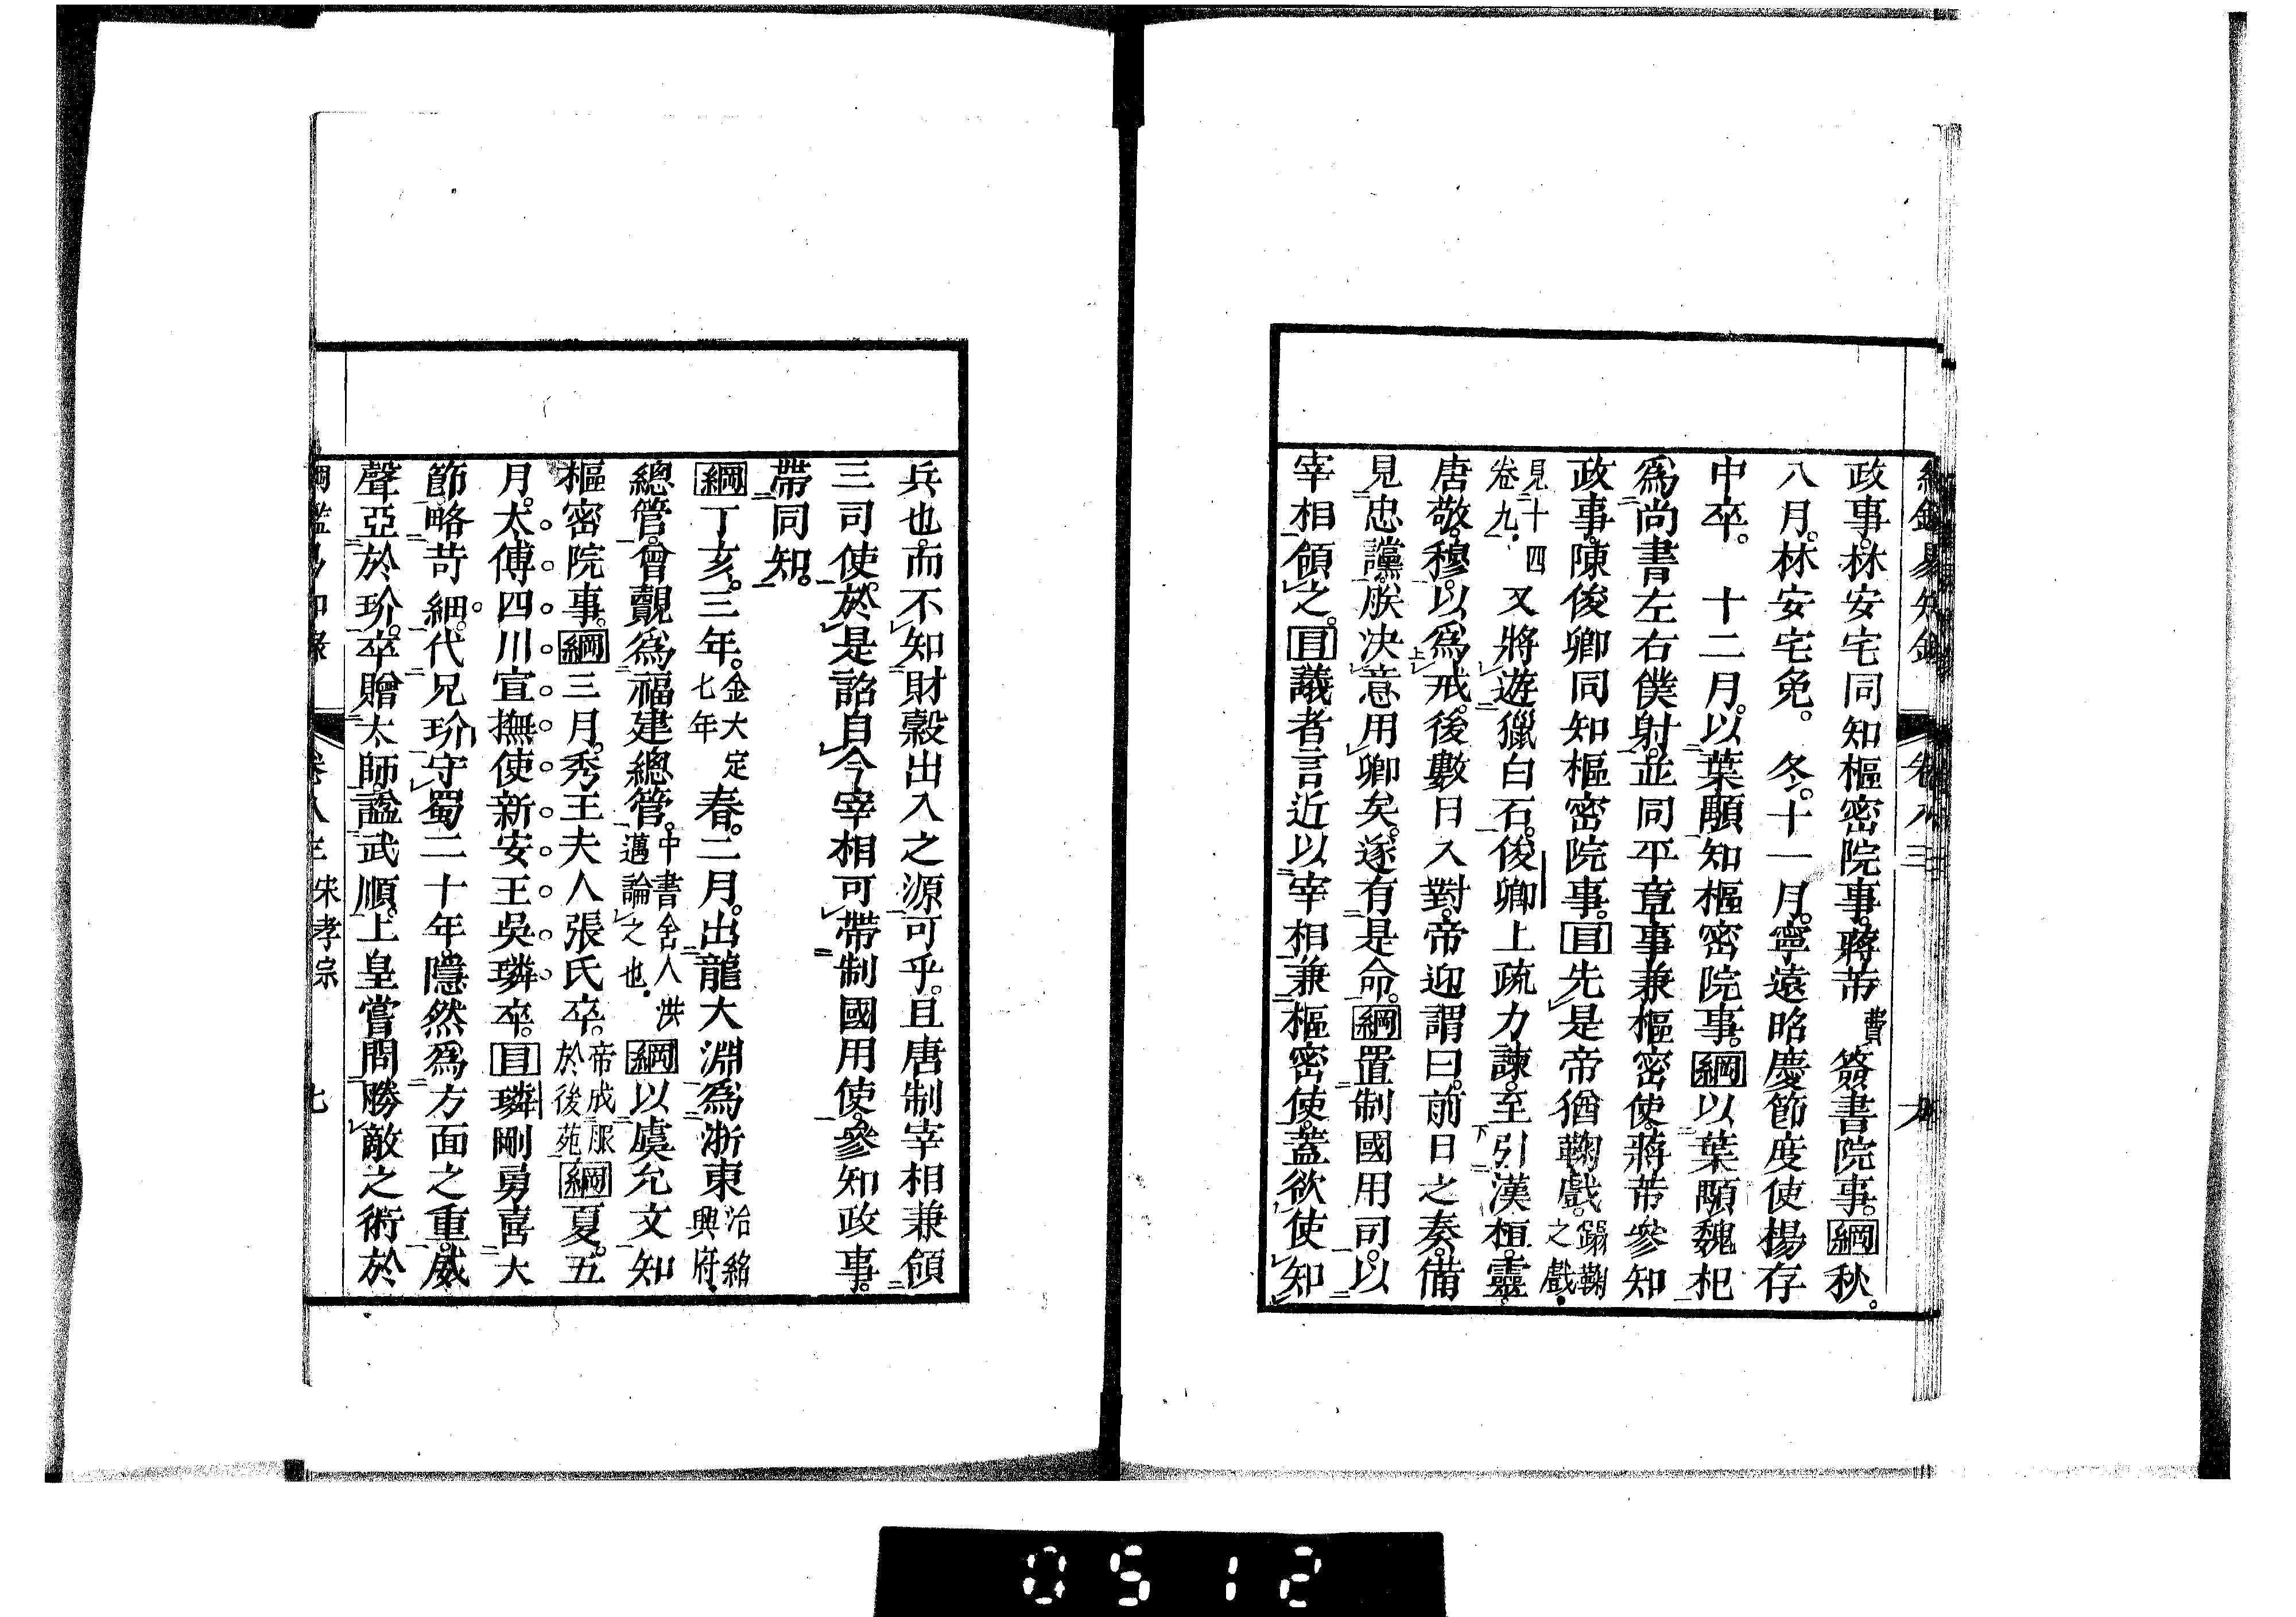 政事。林安宅同知樞密院事。蔣芾費簽書院事。綱秋。
八月。林安宅免。冬。十一月。寧遠昭慶節度使楊存
中卒。十二月。以葉顒知樞密院事。綱以葉顒魏杞
爲尚書左右僕射。並同平章事兼樞密使。蔣芾參知
政事。陳俊卿同知樞密院事。目先是帝猶鞠戲。蹋鞠之戲。
見十四卷九。又將遊獵白石。俊卿上疏力諫。至引漢桓靈。
唐敬。穆。以爲戒。後數日入對。帝迎謂曰。前日之奏。備
見忠讜。朕決意用卿矣。遂有是命。綱置制國用司。以
宰相領之。目議者言近以宰相兼樞密使。蓋欲使知
兵也。而不知財穀出入之源可乎。且唐制宰相兼領
三司使。於是詔自今宰相可帶制國用使。參知政事。
帶同知。
綱丁亥。三年。金大定七年春。二月。出龍大淵爲浙東治紹興府。
總管。曾覿爲福建總管。中書舍人洪邁論之也。綱以虞允文知
樞密院事。綱三月。秀王夫人張氏卒。帝成服於後苑綱夏。五
月。太傅四川宣撫使新安王吳璘卒。目璘剛勇喜大
節。略苛細。代兄玠守蜀二十年。隱然爲方面之重。威
聲亞於玠。卒贈太師。諡武順。上皇嘗問勝敵之術於
宋孝宗 七
0512